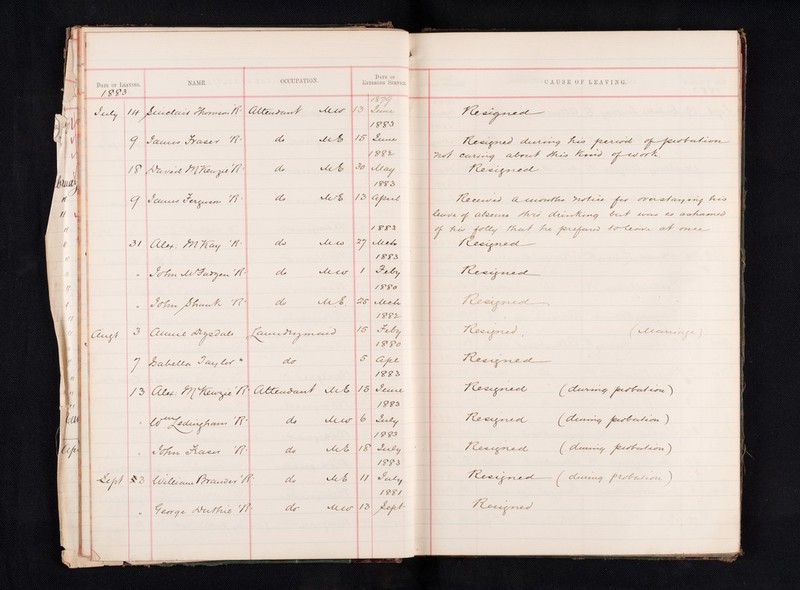 DATE OF LEAVING. NAME. OCCUPATION. DATE OF ENTERING SERVICE. CAUSE OF LEAVING.
1883
1879
July 14 Sinclair Thomson R. Attendant 13 June Resigned
1883
9 James Fraser R. do M.E. 15 June Resigned during his period of probation
1882 not caring about this kind of work.
18 David McKenzie R. do M.E. 30 May Resigned
1883
9 James Ferguson R. do M.E. 13 April Received a months notice for overstaying his
leave of absence thro drinking but was so ashamed
1883 of his folly that he preferred to leave at once
31 Alex: McKay R. do 27 Mch Resigned
1883
" John McFadzen R. do 1 Feby Resigned
1880
" John Shank R. do M.E. 28 Mch Resigned
1882
Augt 3 Annie Drysdale Laundrymaid 15 Feby Resigned. (Marriage)
1880
7 Isabella Taylor " do 5 Ape Resigned
1883
13 Alex: McKenzie R. Attendant M.E. 15 June Resigned (during probation)
1883
" Wm Ledingham R. do 6 July Resigned (during probation)
1883
" John Fraser R. do M.E. 18 July Resigned (during probation)
1883
Sept 3 William Brander R. do M.E. 11 July Resigned (during probation)
1881
" George Duthie R. do 13 Sept Resigned